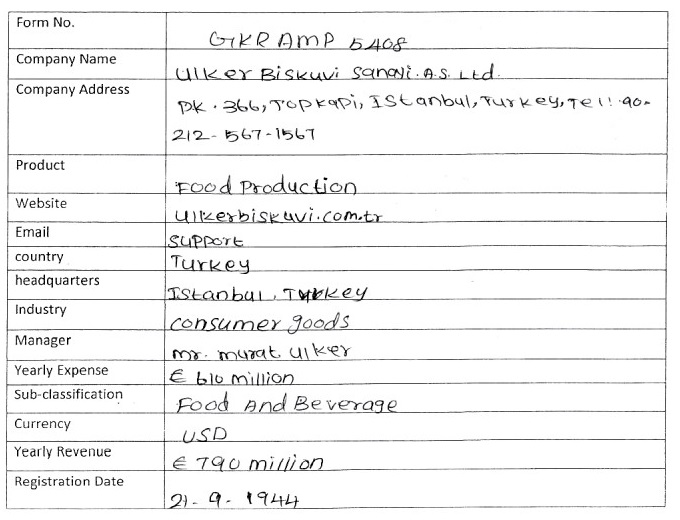 Form No.
GKRAMP 5408
Company Name
Ulker Biskuvi Sanayi. A.S. Ltd.
Company Address
PK. 366, Topkapi, Istanbul, Turkey, Tel: 90-
212-567-1567
Product
Food Production
Website
Ulkerbiskuvi.com.tr
Email
Support
country
Turkey
headquarters
Istanbul, Turkey
Industry
consumer goods
Manager
mr. murat ulker
Yearly Expense
€ 610 million
Sub-classification
Food And Beverage
Currency
USD
Yearly Revenue
€ 790 million
Registration Date
21-9-1944